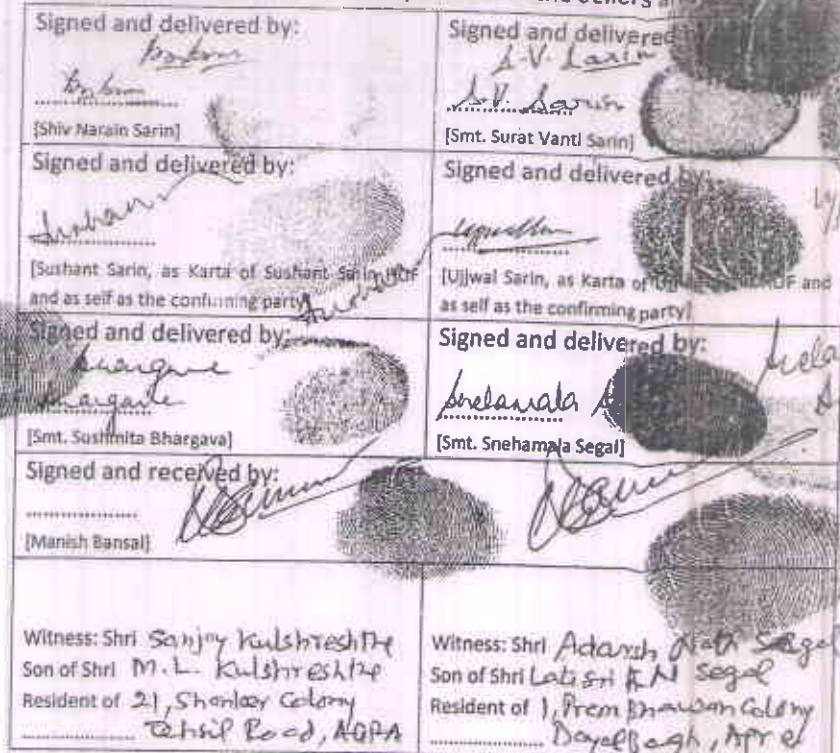 the Sellers
Signed and delivered by:
[Shiv Narain Sarin]
Signed and delivered
S.V. Sarin
S.V. Sarin
[Smt. Surat Vanti Sarin]
Signed and delivered by:
[Sushant Sarin, as Karta of Sushant Sarin HUF
and as self as the confirming party]
Signed and delivered by:
[Ujjwal Sarin, as Karta of HUF and
as self as the confirming party]
Signed and delivered by:
Bhargava
Bhargava
[Smt. Sushmita Bhargava]
Signed and delivered by:
Snehamala
[Smt. Snehamala Segal]
Signed and received by:
[Manish Bansal]
Witness: Shri Sanjay Kulshreshtha
Son of Shri M.L. Kulshreshtha
Resident of 21, Shankar Colony
Tehsil Road, AGRA
Witness: Shri Adarsh Nath Segal
Son of Shri Late Sri Segal
Resident of 1, Prem Bhawan Colony
Dayalbagh, Agra